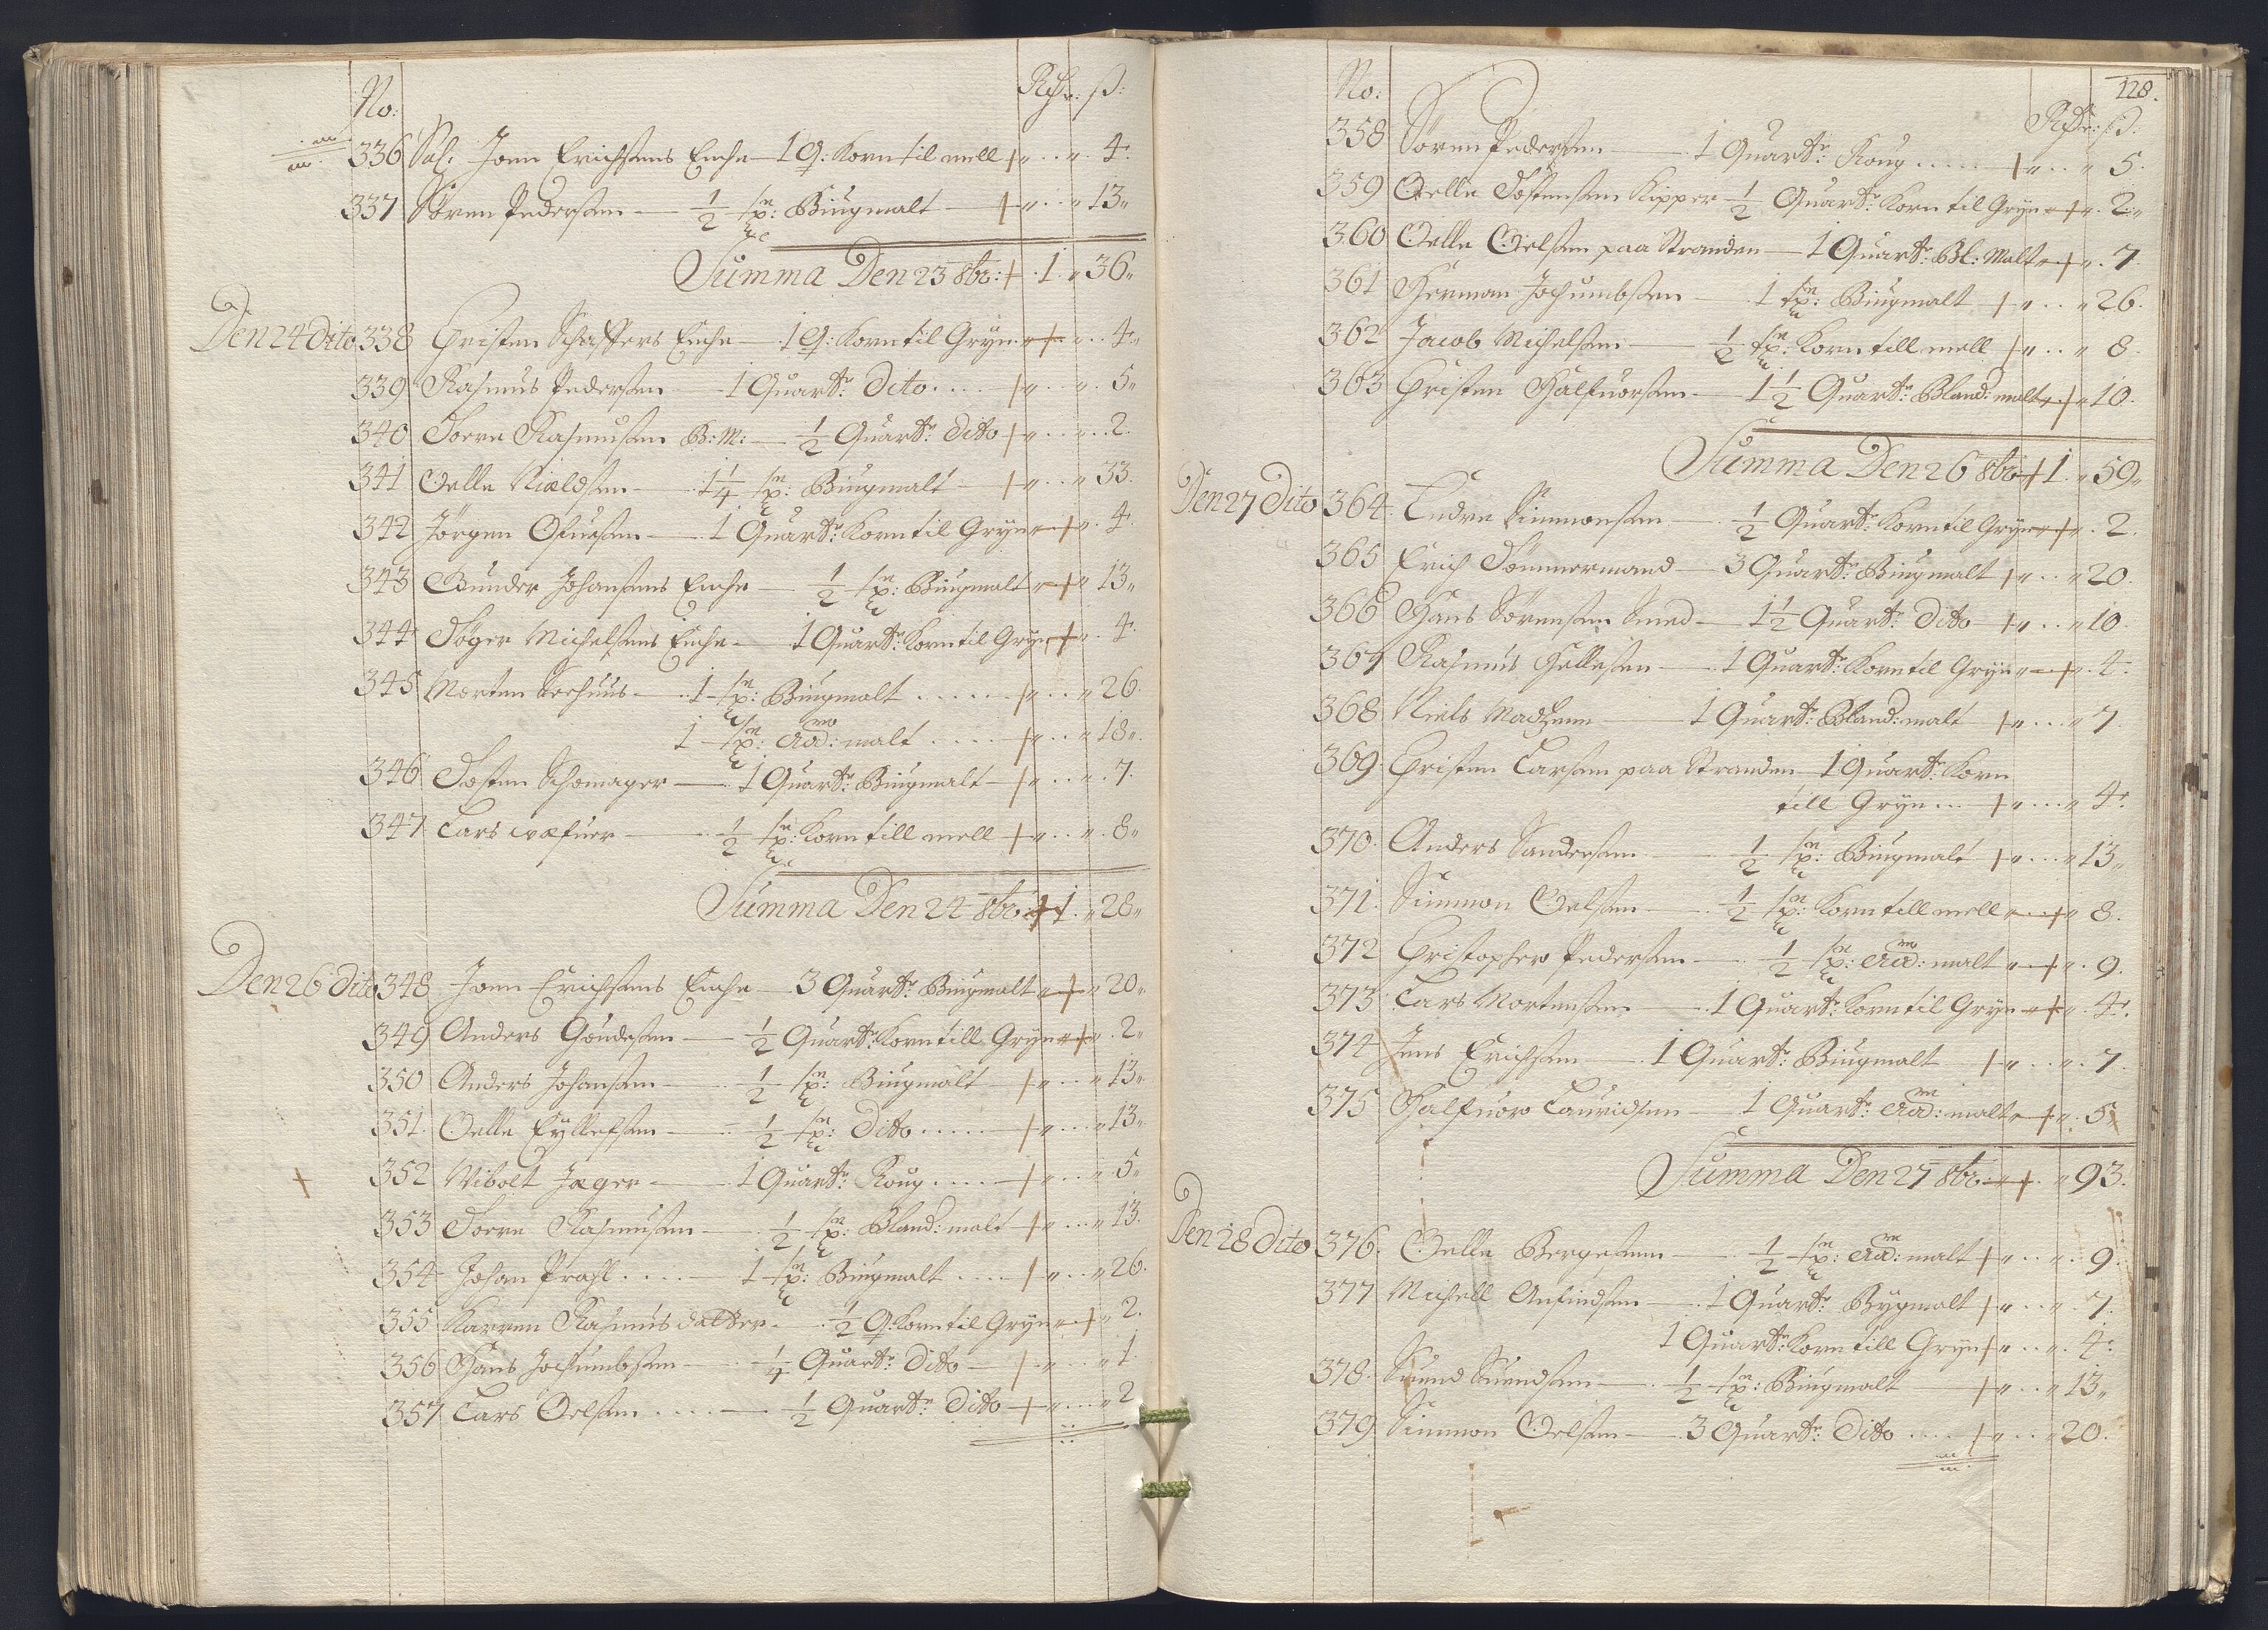 No: Rdr: ß:
336 Sal: Joen Erichsens Enche — 1 Q: Korn til mell „ . . „ 4 „
337 Sören Pedersen — ½ tpn: Biugmalt — „ . . „ 13 „
Summa Den 23 8br: . 1 . „ 36 „
Den 24 dito 338 Christen Schaffers Enche — 1 Q: Korn til Gryn „ . . 4 „
339 Rasmus Pedersen — 1 Quartr: dito . . . . „ . . „ 5 „
340 Torre Rasmusen B: M: — ½ Quartr: dito „ . . „ . 2 .
341 Oelle Nieldsen — 1¼ tpn: Biugmalt — „ . . „ 33 .
342 Jörgen Ofuesen — 1 Quartr: Korn til Gryn „ . 4 .
343 Gunder Johansens Enche — ½ tpn: Biugmalt „ „ 13 „
344 Töger Michelsens Enche — 1 Quartr: Korn til Gryn „ . 4 .
345 Morten Seehuus — 1 tpn: Biugmalt . . . . . . „ . . „ 26 .
1 tpn: Aad: malt . . . . . „ . . „ 18 „
346 Tosten Schomager — 1 Quartr: Biugmalt — „ . . „ . 7 .
347 Lars wæfuer — ½ tpn: Korn till mell „ . . „ . 8 „
Summa Den 24 8br: 1 . „ 28 „
Den 26 dito 348 Joen Erichsens Enche — 3 Quartr: Biugmalt „ „ 20 „
349 Anders Gundesen — ½ Quartr: Korn till Gryn „ . 2 „
350 Anders Johansen — ½ tpn: Biugmalt „ . . „ 13 „
351 . Oelle Eyllefsen — ½ tpn: dito . . . . . „ . . . „ 13 „
352 Nibolt Jæger — 1 Quartr: Roug . . . . . „ . . . „ 5 „
353 Torre Rasmusen — ½ tpn: Bland: malt „ . . . „ 13 .
354 Johan Prahl . . . . — 1 tpn: Biugmalt . . . . „ . . „ 26 .
355 Karren Rasmus datter — ½ Q: Korn til Gryn „ „ 2 .
356 Hans Jochumbsen — ¼ Quartr: dito — „ . . . „ 1 .
357 Lars Oelsen . . . . — ½ Quartr: dito „ . . . „ 2
128 .
No: Rdr: ß:
358 Sören Pedersen — 1 Quartr: Roug . . . . . „ . . „ 5 .
359 Oelle Tostensen Kipper — ½ Quartr: Korn til Gryn „ . 2 . „
360 Oelle Oelsen paa Stranden — 1 Quartr: Bl: Malt „ . 7 .
361 Herman Jochumbsen — 1 tpn: Biugmalt „ . . „ 26 .
362 Jacob Michelsen — ½ tpn: Korn till mell „ . . „ 8 .
363 Christen Halfuorsen — 1½ Quartr: Bland: malt „ „ 10 .
Summa Den 26 8br 1 . „ 59 „
Den 27 Dito 364 . Endre Simmonsen — ½ Quartr: Korn til Gryn „ . 2 .
365 Erich Tömmermand — 3 Quartr: Biugmalt „ . . „ 20 .
366 Hans Sörensen Smed — 1½ Quartr: dito — „ . . „ 10
367 Rasmus Hellesen — 1 Quartr: Korn til Gryn „ „ . 4 .
368 Niels Madzenn — 1 Quartr: Bland: malt „ . . . „ 7 .
369 . Christen Larsen paa Stranden 1 Quartr: Korn
till Gryn . . . „ . . . „ 4 .
370 . Anders Sandersen — ½ tpn: Biugmalt „ . . . „ 13 „
371 . Simmon Oelsen — ½ tpn: Korn till mell „ . . „ 8 .
372 Christopher Pedersen — ½ tpn: Aad: malt „ . „ . 9 .
373 Lars Mortensen — 1 Quartr: Korn til Gryn „ . 4 .
374 Jens Erichsen — 1 Quartr: Biugmalt — „ . . „ . 7 .
375 Halfuor Lauridsen — 1 Quartr: Aad: malt „ „ . 5 „
Summa Den 27 8br: „ . „ 93 .
Den 28 Dito 376 . Oelle Bergesenn — ½ tpn: Aad: malt „ . . „ . 9
377 Michell Anfindsen — 1 Quartr: Bygmalt „ . . „ . 7 .
1 Quartr: Korn till Gryn „ . . „ . 4 .
378 . Suend Suendsen — ½ tpn: Biugmalt — „ . . „ 13 „
379 . Simmon Oelsen — 3 Quartr: Dito . . . . „ . . „ 20 .